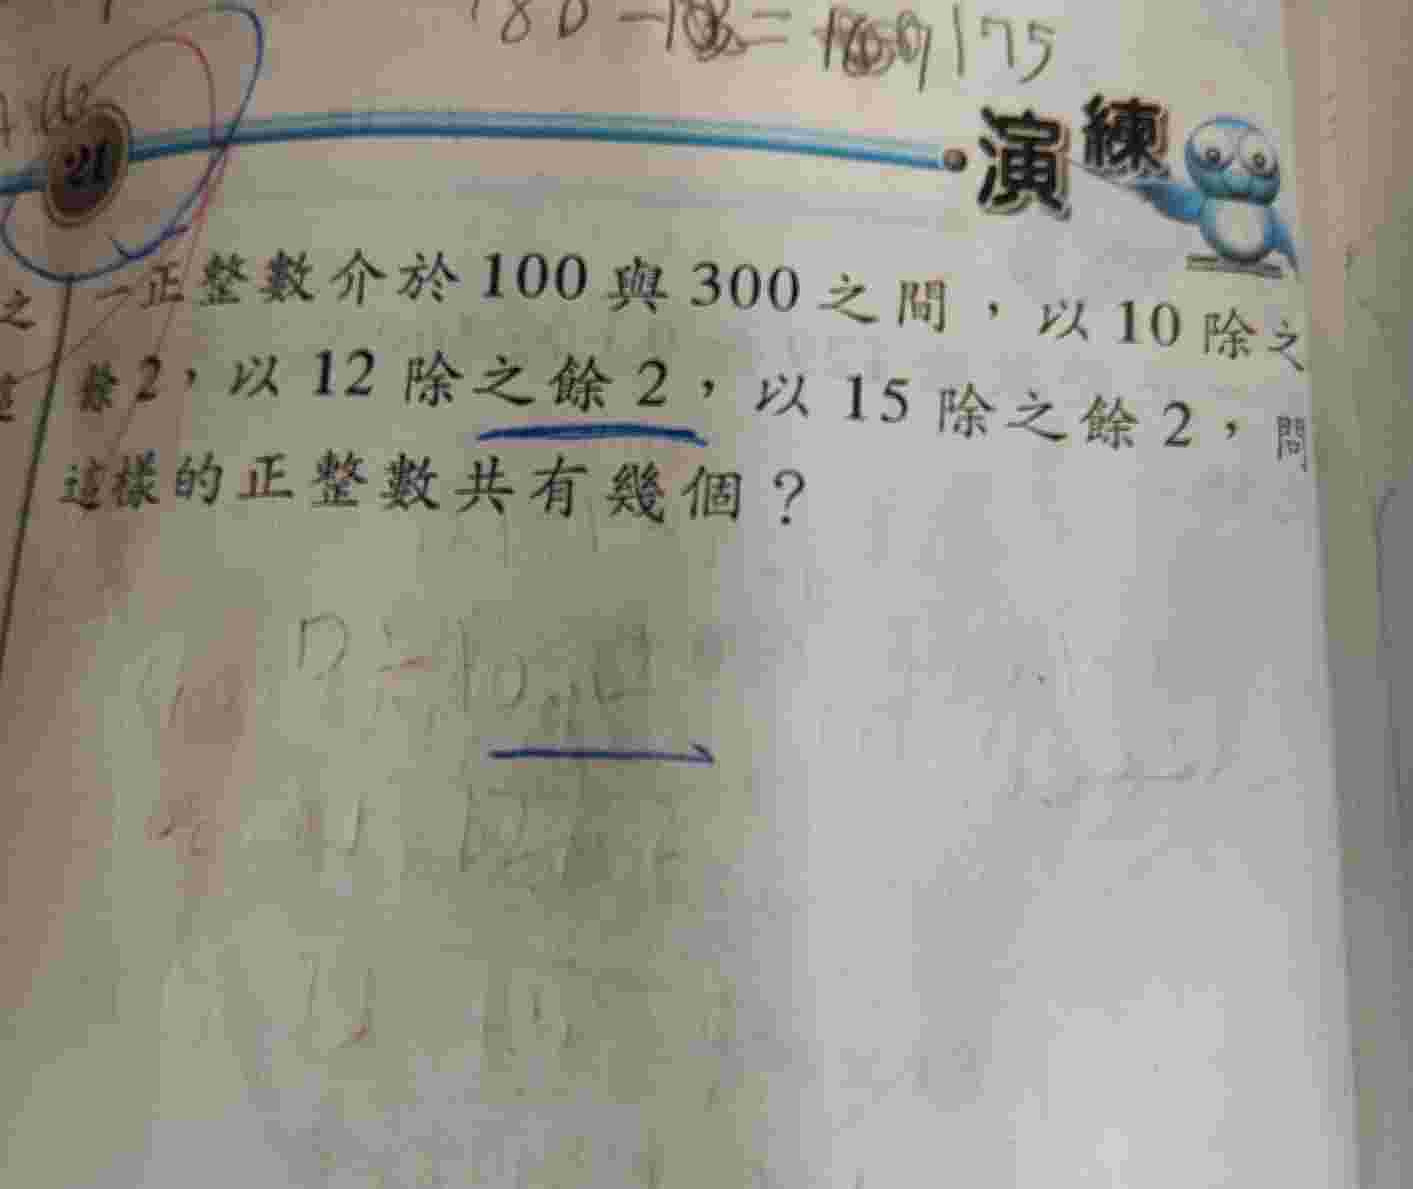 180-
=
175
21
演練
一正整數介於100與300之間，以10除之
餘2，以12除之餘2，以15除之餘2，問
這樣的正整數共有幾個？